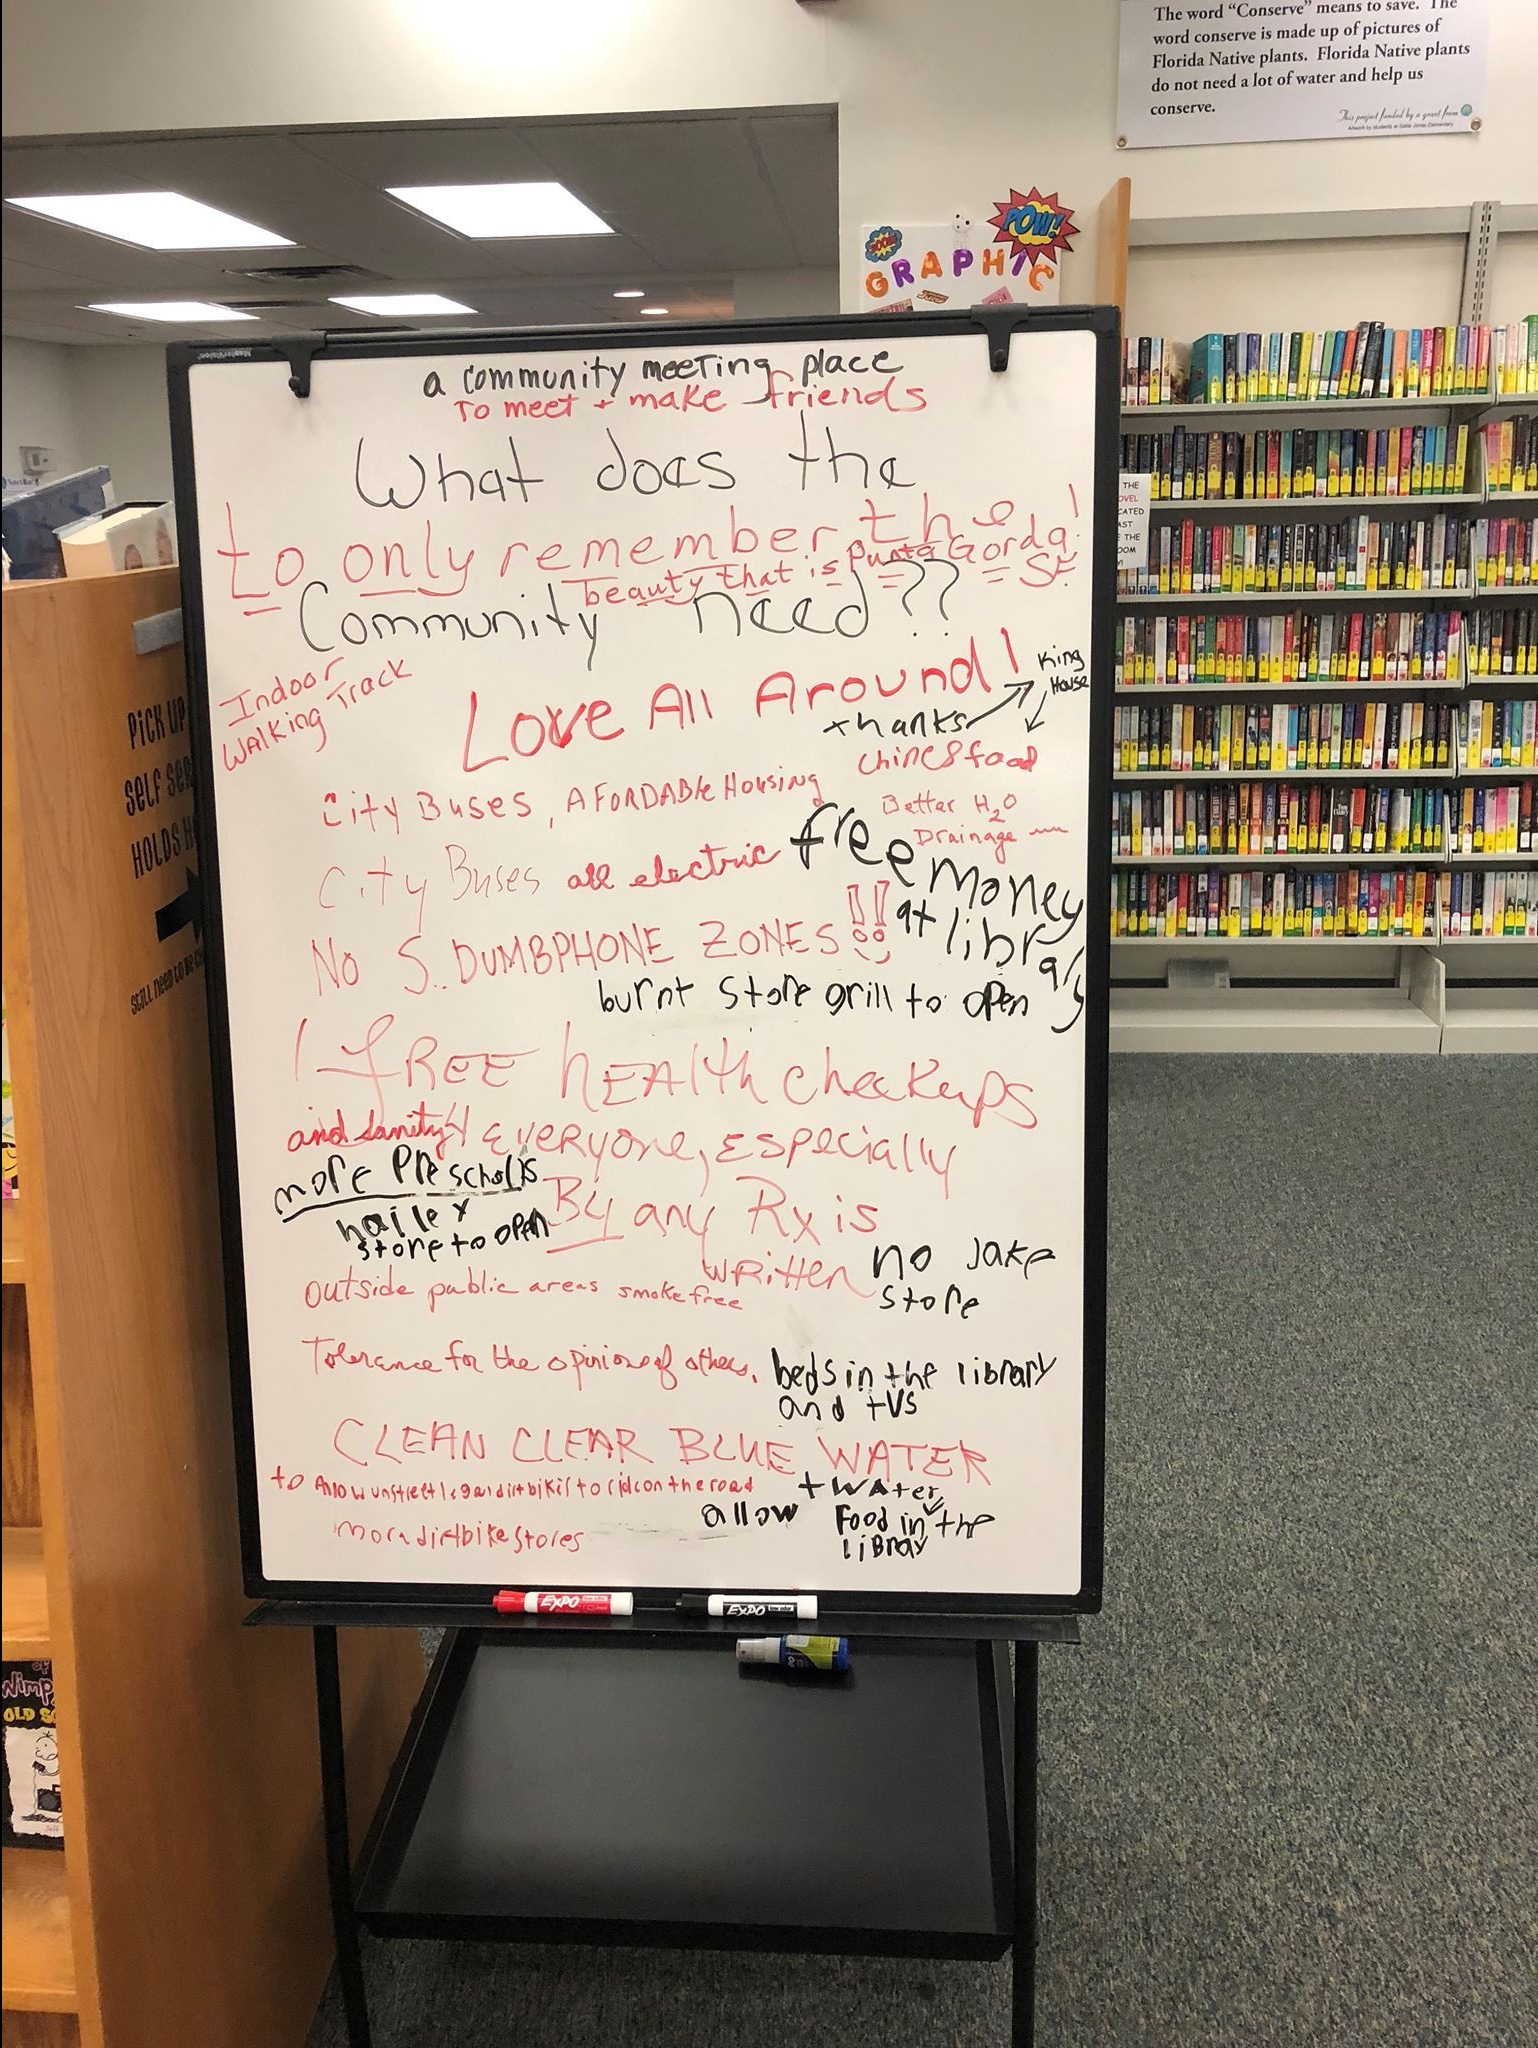 The word "Conserve" means to save. The
word conserve is made up of pictures of
Florida Native plants. Florida Native plants
do not need a lot of water and help us
conserve.
This project funded by a grant from
Artwork by students at Sallie Jones Elementary
POW!
BOOM
GRAPHIC
a community meeting place
To meet + make friends
What does the
to only remember the
beauty that is Punta Gorda!
Community need??
Indoor
Walking Track
Love All Around!
King
House
thanks
chines food
City Buses, AFORDABle Housing
Better H2O
Drainage
City Buses all electric
free money
at library
No S. DUMBPHONE ZONES!!
burnt store grill to open
FREE hEAlth checkups
and sanity 4 everyone, Especially
more Preschools
By any Rx is
hailey
store to open
WRitten
no Jake
store
outside public areas smoke free
Tolerance for the opinions of others.
beds in the library
and tvs
CLEAN CLEAR BLUE WATER
to Allow unstreet legal dirt bikes to ride on the road
+ water
allow
Food in the
libray
more dirtbike stores
EXPO
EXPO
PICK UP
SELF SER
HOLDS H
STILL NEED TO BE
THE
OVEL
CATED
AST
THE
OOM
of
Wimp
OLD S